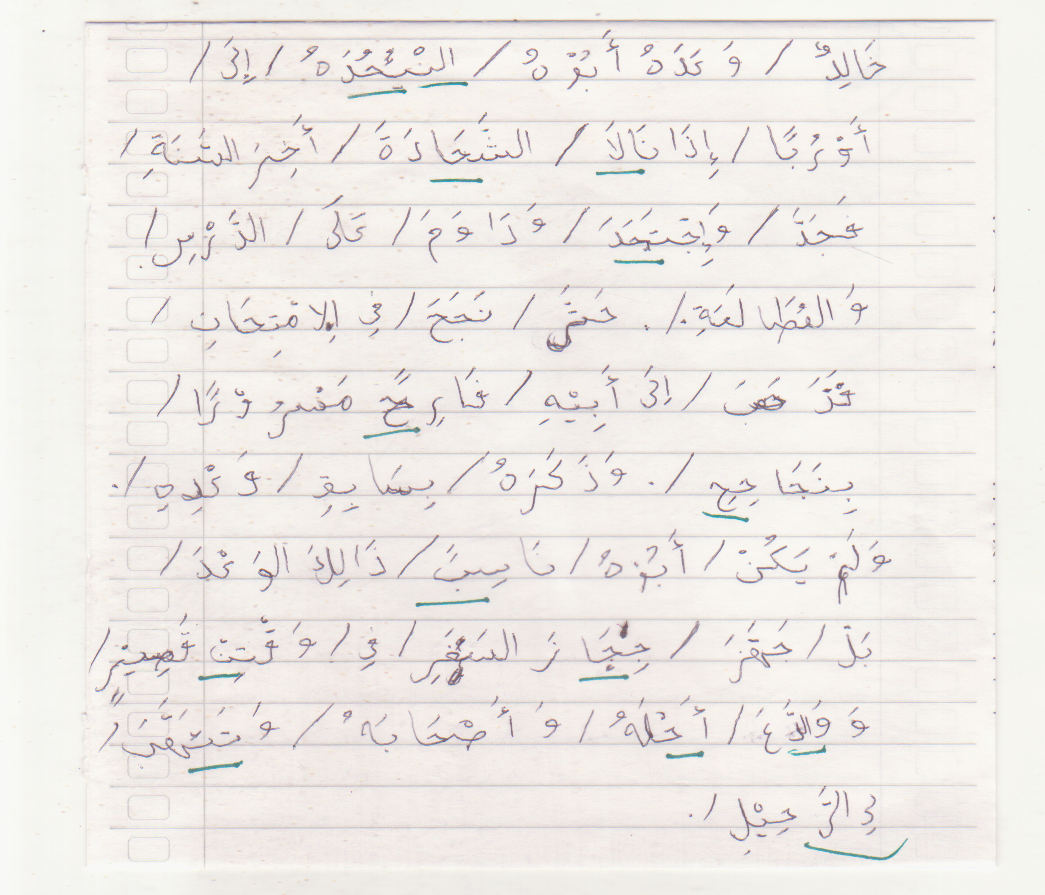 خَالِدٌ / وَعَدَهُ أَبُوْهُ / اليَبْحُدَهُ / إِلَى /
أَوْرُبَّا / إِذَا نَالَا / الشَّحَادَةَ / أَخِرَ السَّنَةِ /
فَجَدَّ / وَإِجْتَحَدَ / وَدَاوَمَ / عَلَى / الدَّرْسِ /
وَ المُطَالَعَةِ /. حَتَّى / نَجَحَ / فِي الِامْتِحَانِ /
فَذَحَبَ / إِلَى أَبِيْهِ / فَارِحًّ مَسْرُوْرًا /
بِنَجَاحِحِ /. وَذَكَرَهُ / بِسَابِقِ / وَعْدِهِ /.
وَلَمْ يَكُنْ / أَبُوْهُ / نَاسِبً / ذَالِكَ الوَعْدَ /
بَلْ / جَهَّزَ / حِجَازَ السَفَرِ / فِي / وَقْتِتٍ قَصِيْرٍ /
وَ وَالدَّعَ / أَحْلَهُ / وَ أَصْحَابَهُ / وَتَتَهَّبَ /
لِ الرَّحِيْلِ /.